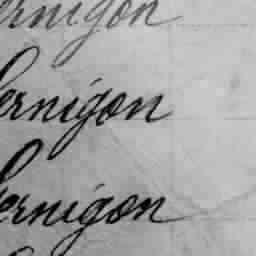 ernigon
ernigon
ernigon